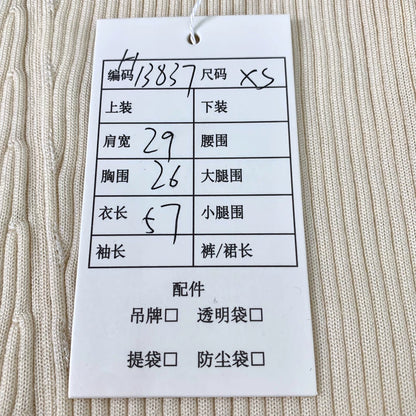 编码 H13837 尺码 XS
上装 下装
肩宽 29 腰围
胸围 26 大腿围
衣长 57 小腿围
袖长 裤/裙长
配件
吊牌□ 透明袋□
提袋□ 防尘袋□